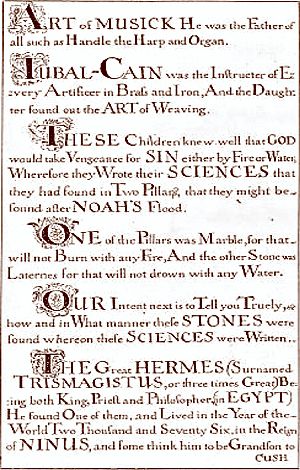 ART of MUSICK He was the Father of
all such as Handle the Harp and Organ.
TUBAL-CAIN was the Instructer of E-
very Artificer in Braſs and Iron, And the Daugh-
ter found out the ART of Weaving.
THESE Children knew well that GOD
would take Vengeance for SIN either by Fire or Water,
Wherefore they Wrote their SCIENCES that
they had found in Two Pillars, that they might be
found after NOAH'S Flood.
ONE of the Pillars was Marble, for that
will not Burn with any Fire, And the other Stone was
Laternes for that will not drown with any Water.
OUR Intent next is to Tell you Truely,
how and in What manner theſe STONES were
found whereon theſe SCIENCES were Written..
THE Great HERMES (Surnamed
TRISMAGISTUS, or three times Great) Be-
ing both King, Prieſt and Philoſopher, (in EGYPT)
He found One of them, and Lived in the Year of the
World Two Thousand and Seventy Six, in the Reign
of NINUS, and ſome think him to be Grandſon to
CUSH